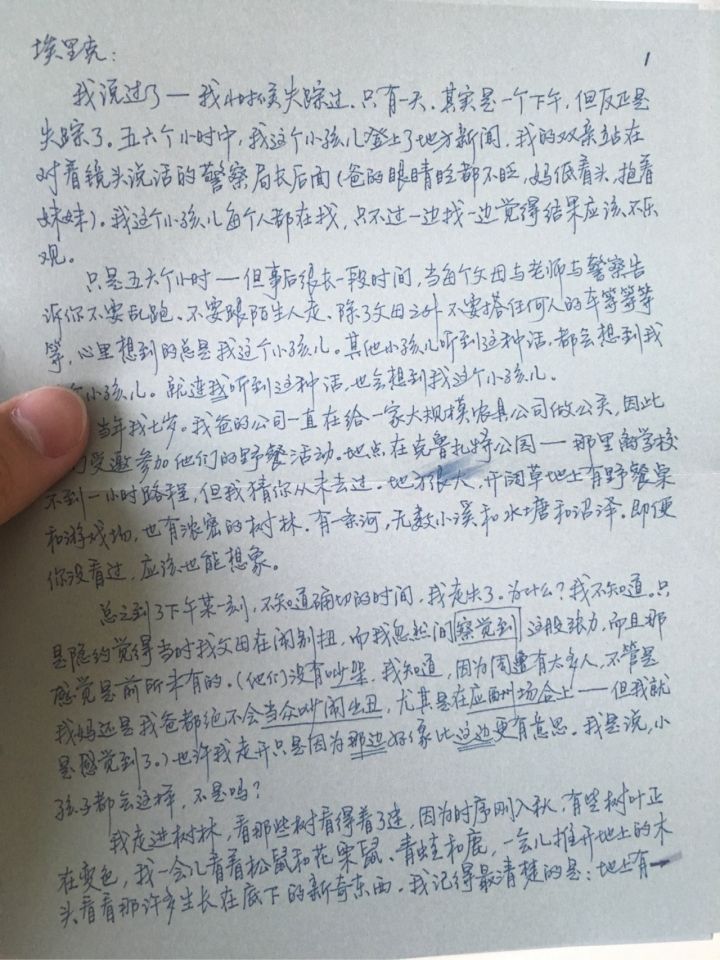 埃里克：
1
我说过了—我小时候失踪过．只有一天．其实是一个下午，但反正是
失踪了．五六个小时中，我这个小孩儿登上了地方新闻，我的双亲站在
对着镜头说话的警察局长后面（爸的眼睛眨都不眨，妈低着头，抱着
妹妹）．我这个小孩儿每个人都在找，只不过一边找一边觉得结果应该不乐
观。
只是五六个小时—但事后很长一段时间，当每个父母与老师与警察告
诉你不要乱跑、不要跟陌生人走、除了父母之外不要搭任何人的车等等等
等，心里想到的总是我这个小孩儿．其他小孩儿听到这种话，都会想到我
个小孩儿．就连我听到这种话，也会想到我这个小孩儿．
当年我七岁．我爸的公司一直在给一家大规模农具公司做公关，因此
受邀参加他们的野餐活动．地点在克鲁扎特公园—那里离学校
不到一小时路程，但我猜你从未去过．地方很大，开阔草地上有野餐桌
和游戏场，也有浓密的树林．有一条河，无数小溪和水塘和沼泽．即便
你没看过，应该也能想象。
总之到了下午某一刻，不知道确切的时间，我走出了．为什么？我不知道．只
是隐约觉得当时我父母在闹别扭，而我忽然间察觉到这股张力，而且那
感觉是前所未有的．（他们没有吵架，我知道，因为周遭有太多人，不管是
我妈还是我爸都绝不会当众吵闹出丑，尤其是在应酬场合上—但我就
是感觉到了．）也许我走开只是因为那边好像比这边更有意思．我是说，小
孩子都会这样，不是吗？
我走进树林，看那些树看得着了迷，因为时序刚入秋，有些树叶正
在变色，我一会儿看看松鼠和花栗鼠、青蛙和鹿，一会儿推开地上的木
头看看那许多生长在底下的新奇东西．我记得最清楚的是：地上有一